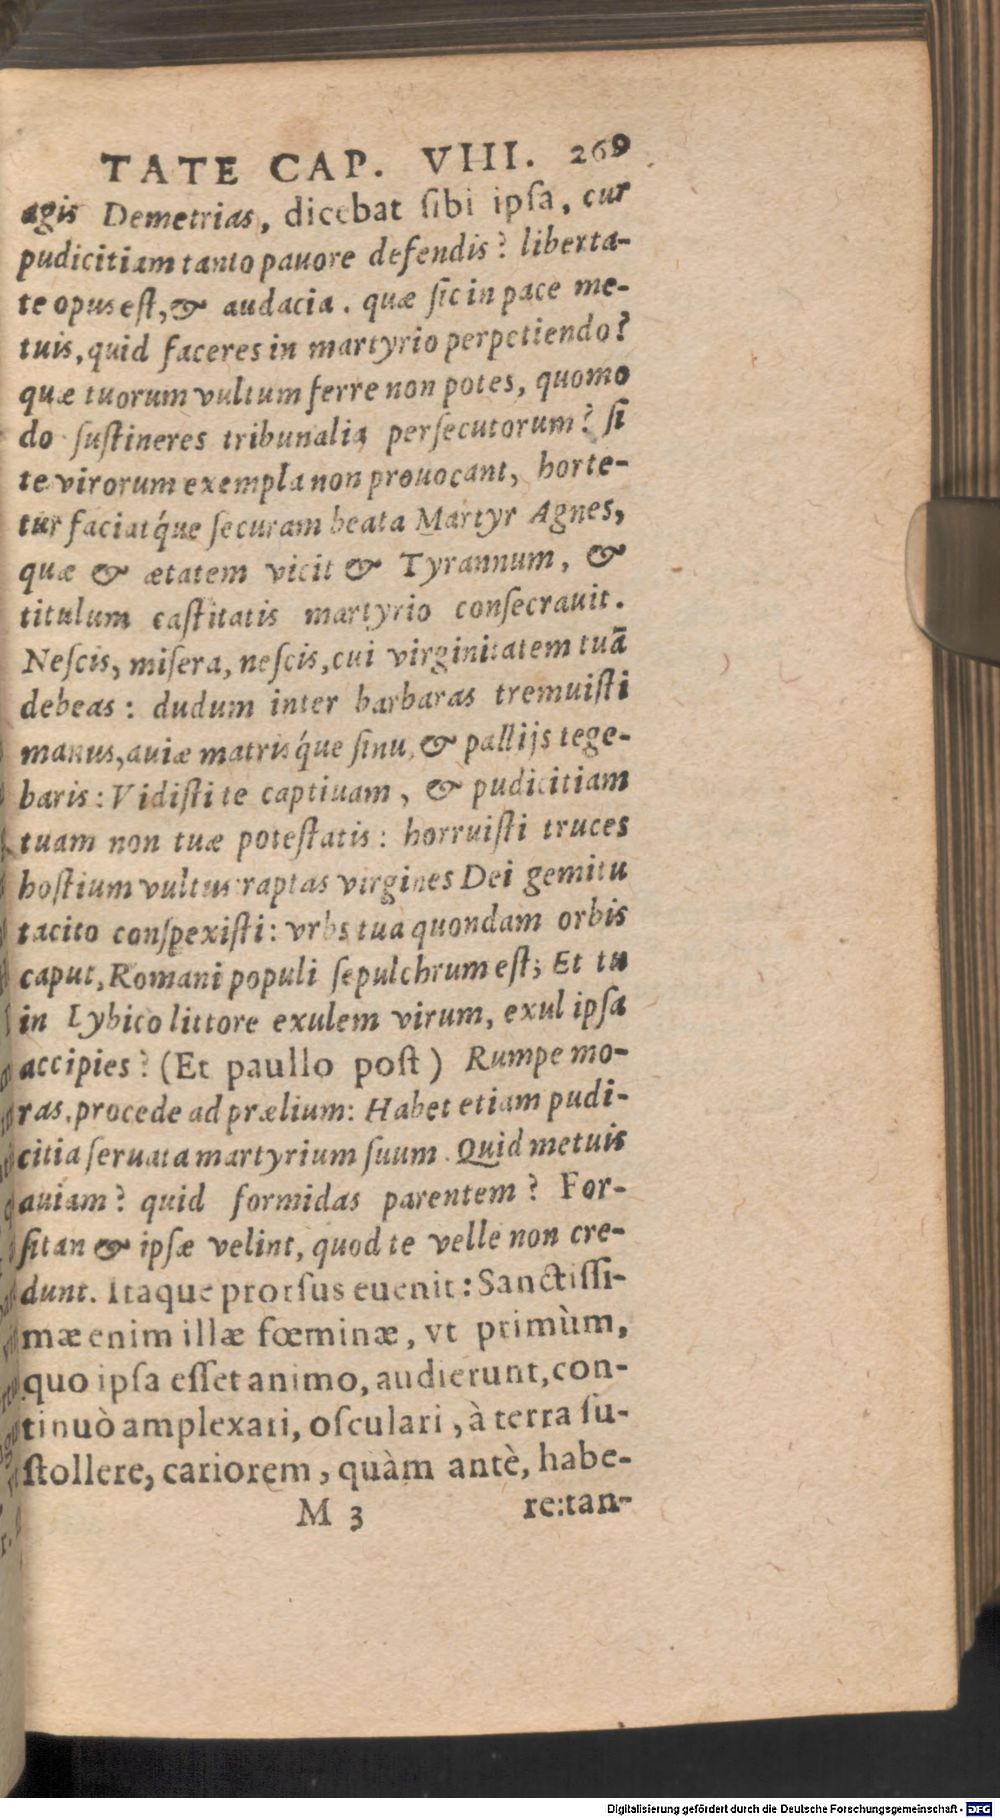 TATE CAP. VIII. 269
agis Demetrias, dicebat ſibi ipſa, cur
pudicitiam tanto pavore defendis? liberta-
te opus eſt, & audacia. quæ ſic in pace me-
tuis, quid faceres in martyrio perpetiendo?
quæ tuorum vultum ferre non potes, quomo
do ſuſtineres tribunalia perſecutorum? ſi
te virorum exempla non prouocant, horte-
tur faciatq́ue ſecuram beata Martyr Agnes,
quæ & ætatem vicit & Tyrannum, &
titulum caſtitatis martyrio conſecrauit.
Neſcis, miſera, neſcis, cui virginitatem tuā
debeas: dudum inter barbaras tremuiſti
manus, auiæ matrisq́ue ſinu, & pallijs tege-
baris: Vidiſti te captiuam, & pudicitiam
tuam non tuæ poteſtatis: horruiſti truces
hoſtium vultus: raptas virgines Dei gemitu
tacito conſpexiſti: vrbs tua quondam orbis
caput, Romani populi ſepulchrum eſt; Et tu
in Lybico littore exulem virum, exul ipſa
accipies? (Et paullo poſt) Rumpe mo-
ras, procede ad prælium: Habet etiam pudi-
citia ſeruata martyrium ſuum. Quid metuis
auiam? quid formidas parentem? For-
ſitan & ipſæ velint, quod te velle non cre-
dunt. Itaque prorſus euenit: Sanctiſſi-
mæ enim illæ fœminæ, vt primùm,
quo ipſa eſſet animo, audierunt, con-
tinuò amplexari, oſculari, à terra ſu-
ſtollere, cariorem, quàm antè, habe-
M 3 re: tan-
Digitalisierung gefördert durch die Deutsche Forschungsgemeinschaft - DFG